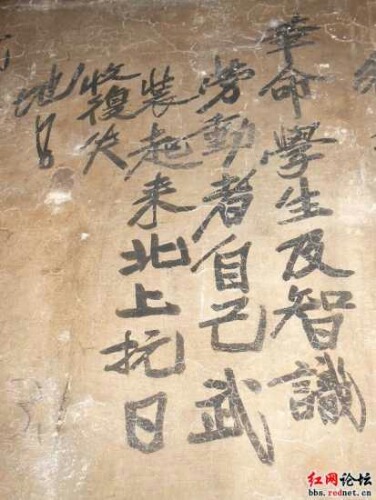 革命學生及智識
勞動者自己武
装起来北上抗日
收復失
地
红网论坛
bbs.rednet.cn